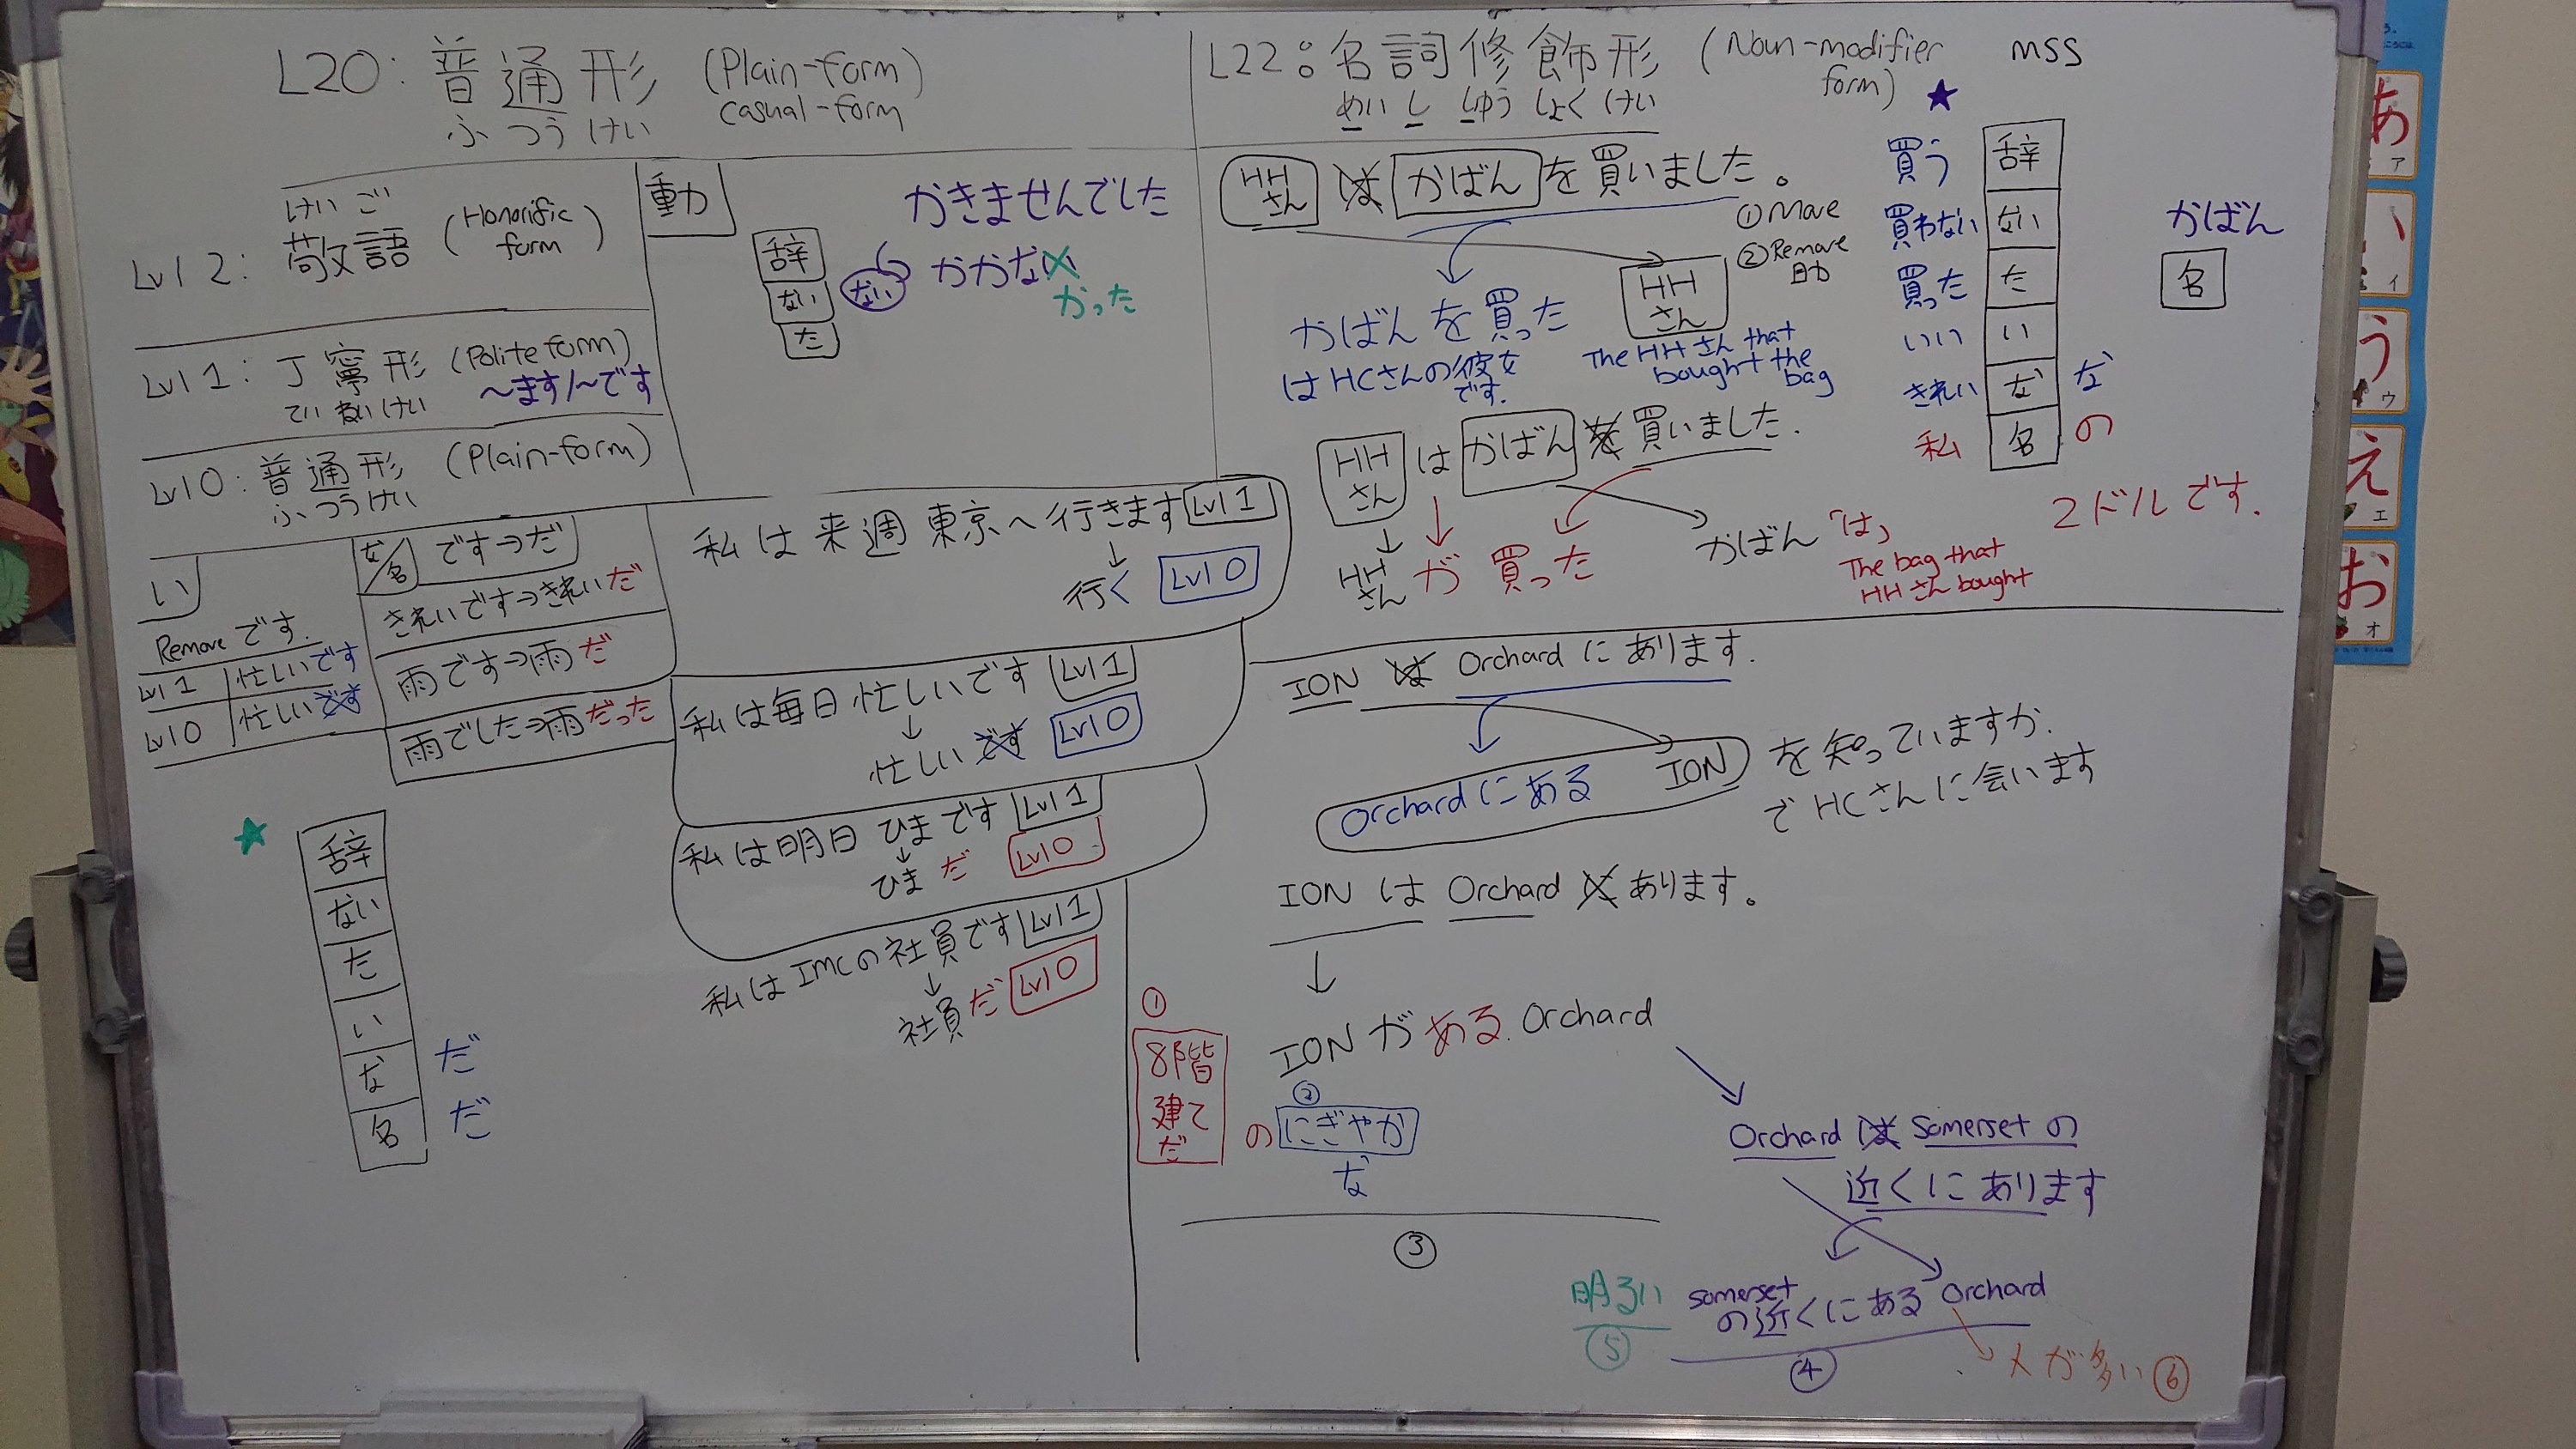 L20: 普通形 (Plain-form)
casual-form
ふつうけい
けいご
Lvl 2: 敬語 (Honorific form)
Lvl 1: 丁寧形 (Polite form)
~ます/~です
ていねいけい
Lvl 0: 普通形 (Plain-form)
ふつうけい
動
辞
ない
た
かきませんでした
ない かかない
かった
い
Remove です.
Lvl 1 忙しいです
Lvl 0 忙しいです
な/名 です→だ
きれいです→きれいだ
雨です→雨だ
雨でした→雨だった
私は来週東京へ行きます Lvl 1
↓
行く Lvl 0
私は毎日忙しいです Lvl 1
↓
忙しいです Lvl 0
私は明日ひまです Lvl 1
↓
ひまだ Lvl 0
私はIMCの社員です Lvl 1
↓
社員だ Lvl 0
★
辞
ない
た
い
な だ
名 だ
L22: 名詞修飾形 (Noun-modifier form) MSS
めいし しゅうしょくけい
★
HHさん は かばん を買いました。
① Move
② Remove 助
かばんを買った HHさん
The HHさん that bought the bag
はHCさんの彼女です.
買う 辞
買わない ない
買った た
いい い
きれい な な
私 名 の
かばん
名
HHさん は かばん を 買いました.
HHさん が 買った かばん「は」 2ドルです.
The bag that HHさん bought
ION は Orchard にあります.
Orchardにある ION を知っていますか.
で HCさんに会います
ION は Orchard に あります。
↓
ION が ある Orchard
①
8階建てだ
の
②
にぎやか
な
③
Orchard は Somerset の
近くにあります
Somerset
の近くにある Orchard
④
明るい
⑤
人が多い ⑥
あ ア
い イ
う ウ
え エ
お オ